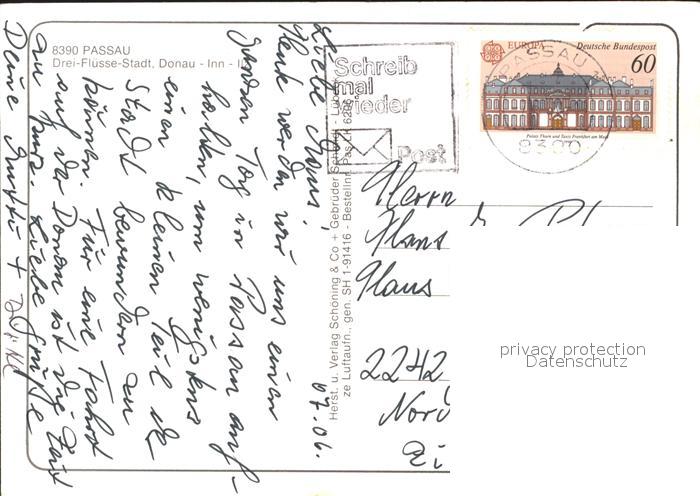 8390 PASSAU
Drei-Flüsse-Stadt, Donau - Inn - Il
Liebe
07.06.
Heute werden wir uns einen
ganzen Tag in Passau auf-
halten, um wenigstens
einen kleinen Teil der
Stadt bewundern zu
können. Für eine Fahrt
auf der Donau ist die Zeit
zu kurz. Liebe Grüße
Deine
Herst. u. Verlag Schöning & Co + Gebrüder Schmidt, Lübeck
ze Luftaufn., gen. SH 1-91416 - Bestellnr. Pas LK 6206
Schreib
mal
wieder
Post
EUROPA Deutsche Bundespost
60
Palais Thurn und Taxis Frankfurt am Main
PASSAU
8390
Herrn
Hans
Klaus
2242
privacy protection
Datenschutz